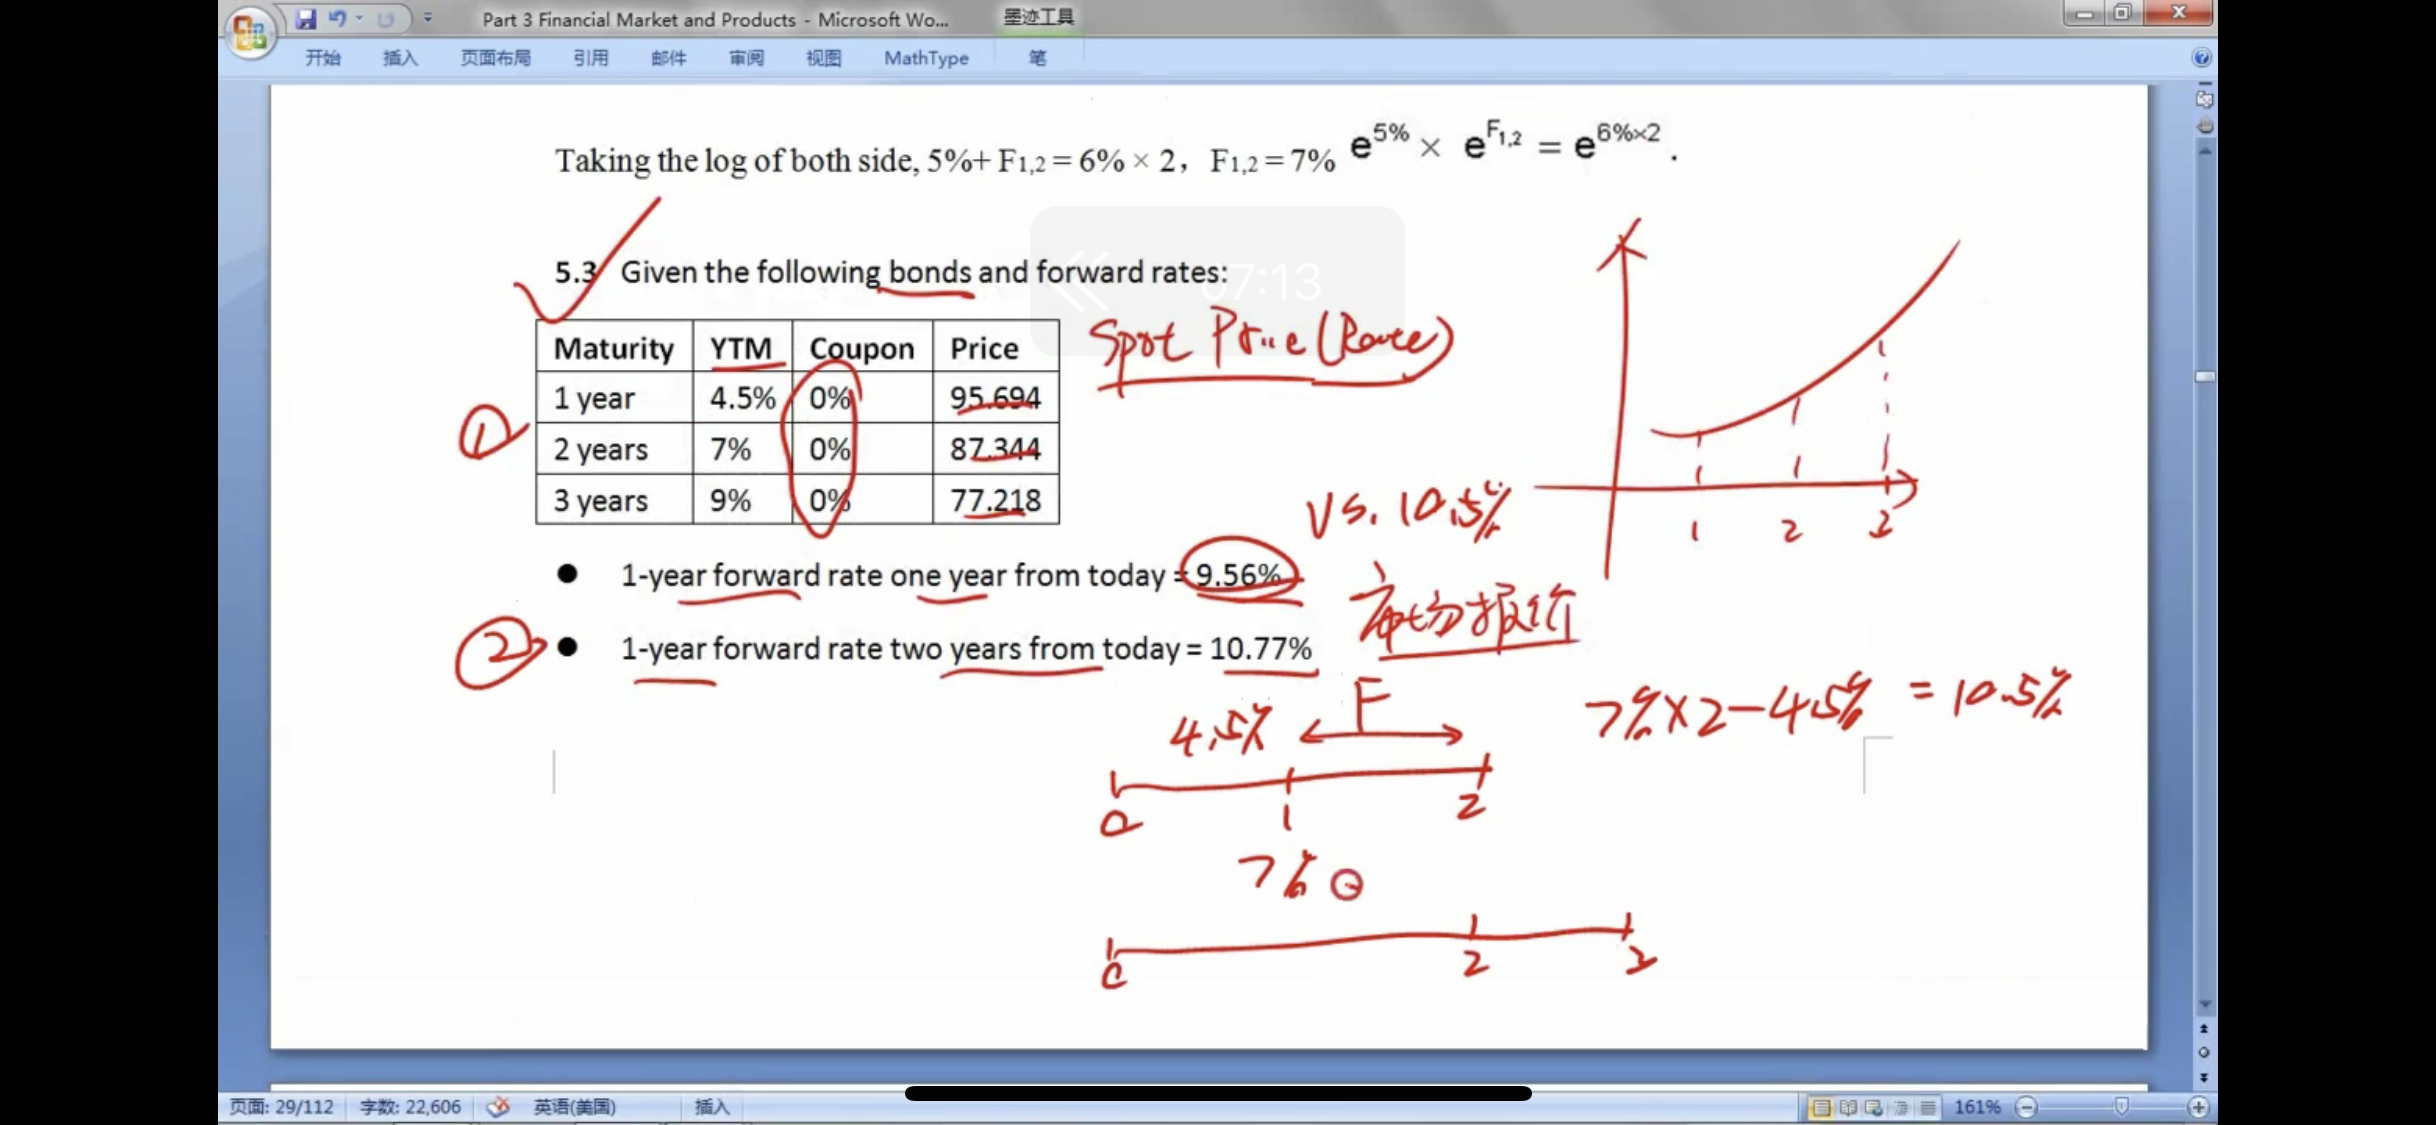 Part 3 Financial Market and Products - Microsoft Wo...
墨迹工具
开始 插入 页面布局 引用 邮件 审阅 视图 MathType 笔
Taking the log of both side, 5%+ F1,2 = 6% × 2, F1,2 = 7% e^5% × e^F1,2 = e^6%×2 .
5.3 Given the following bonds and forward rates:
07:13
Maturity YTM Coupon Price
1 year 4.5% 0% 95.694
2 years 7% 0% 87.344
3 years 9% 0% 77.218
Spot Price (Rate)
①
vs. 10.5%
1 2 3
● 1-year forward rate one year from today = 9.56%
市场报价
② ● 1-year forward rate two years from today = 10.77%
F
4.5%
7% × 2 - 4.5% = 10.5%
0 1 2
7%
0 2 3
页面: 29/112 字数: 22,606 英语(美国) 插入 161%